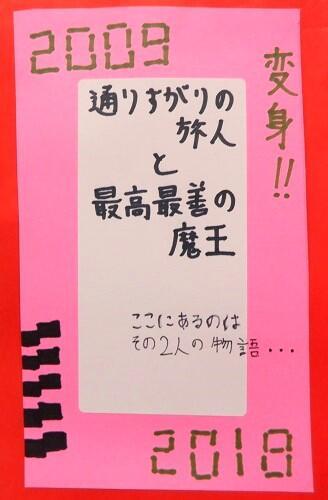 2009
変身!!
通りすがりの
旅人
と
最高最善の
魔王
ここにあるのは
その2人の物語...
2018